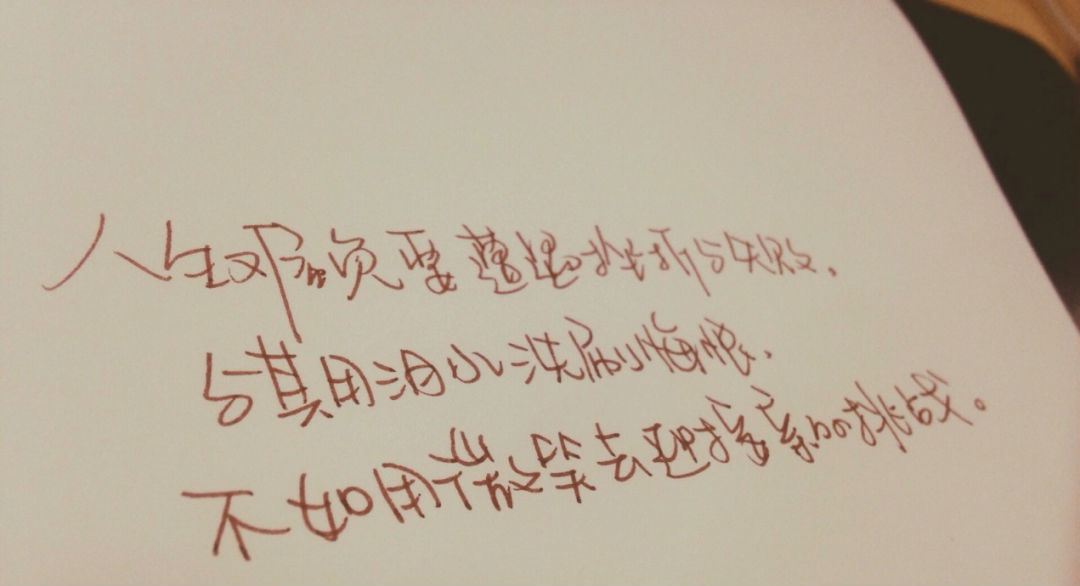 人生难免要遭遇挫折与失败,
与其用泪水洗刷悔恨,
不如用微笑去迎接新的挑战。